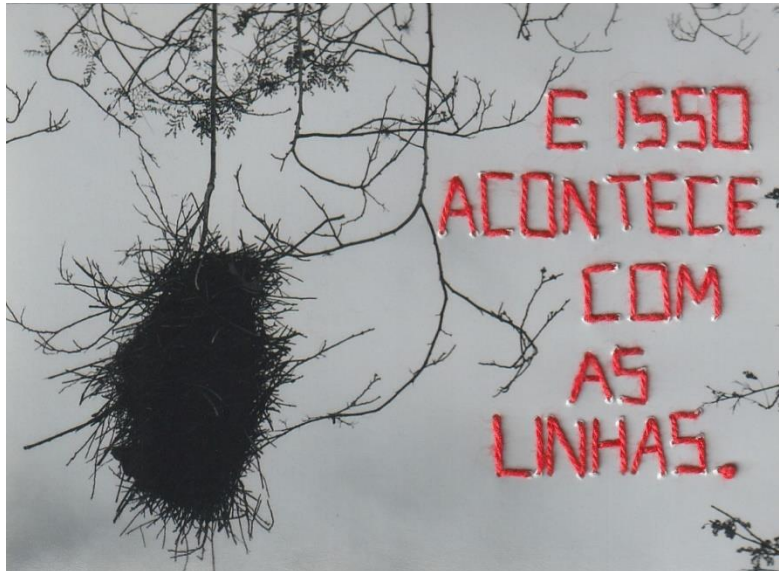 E ISSO
ACONTECE
COM
AS
LINHAS.